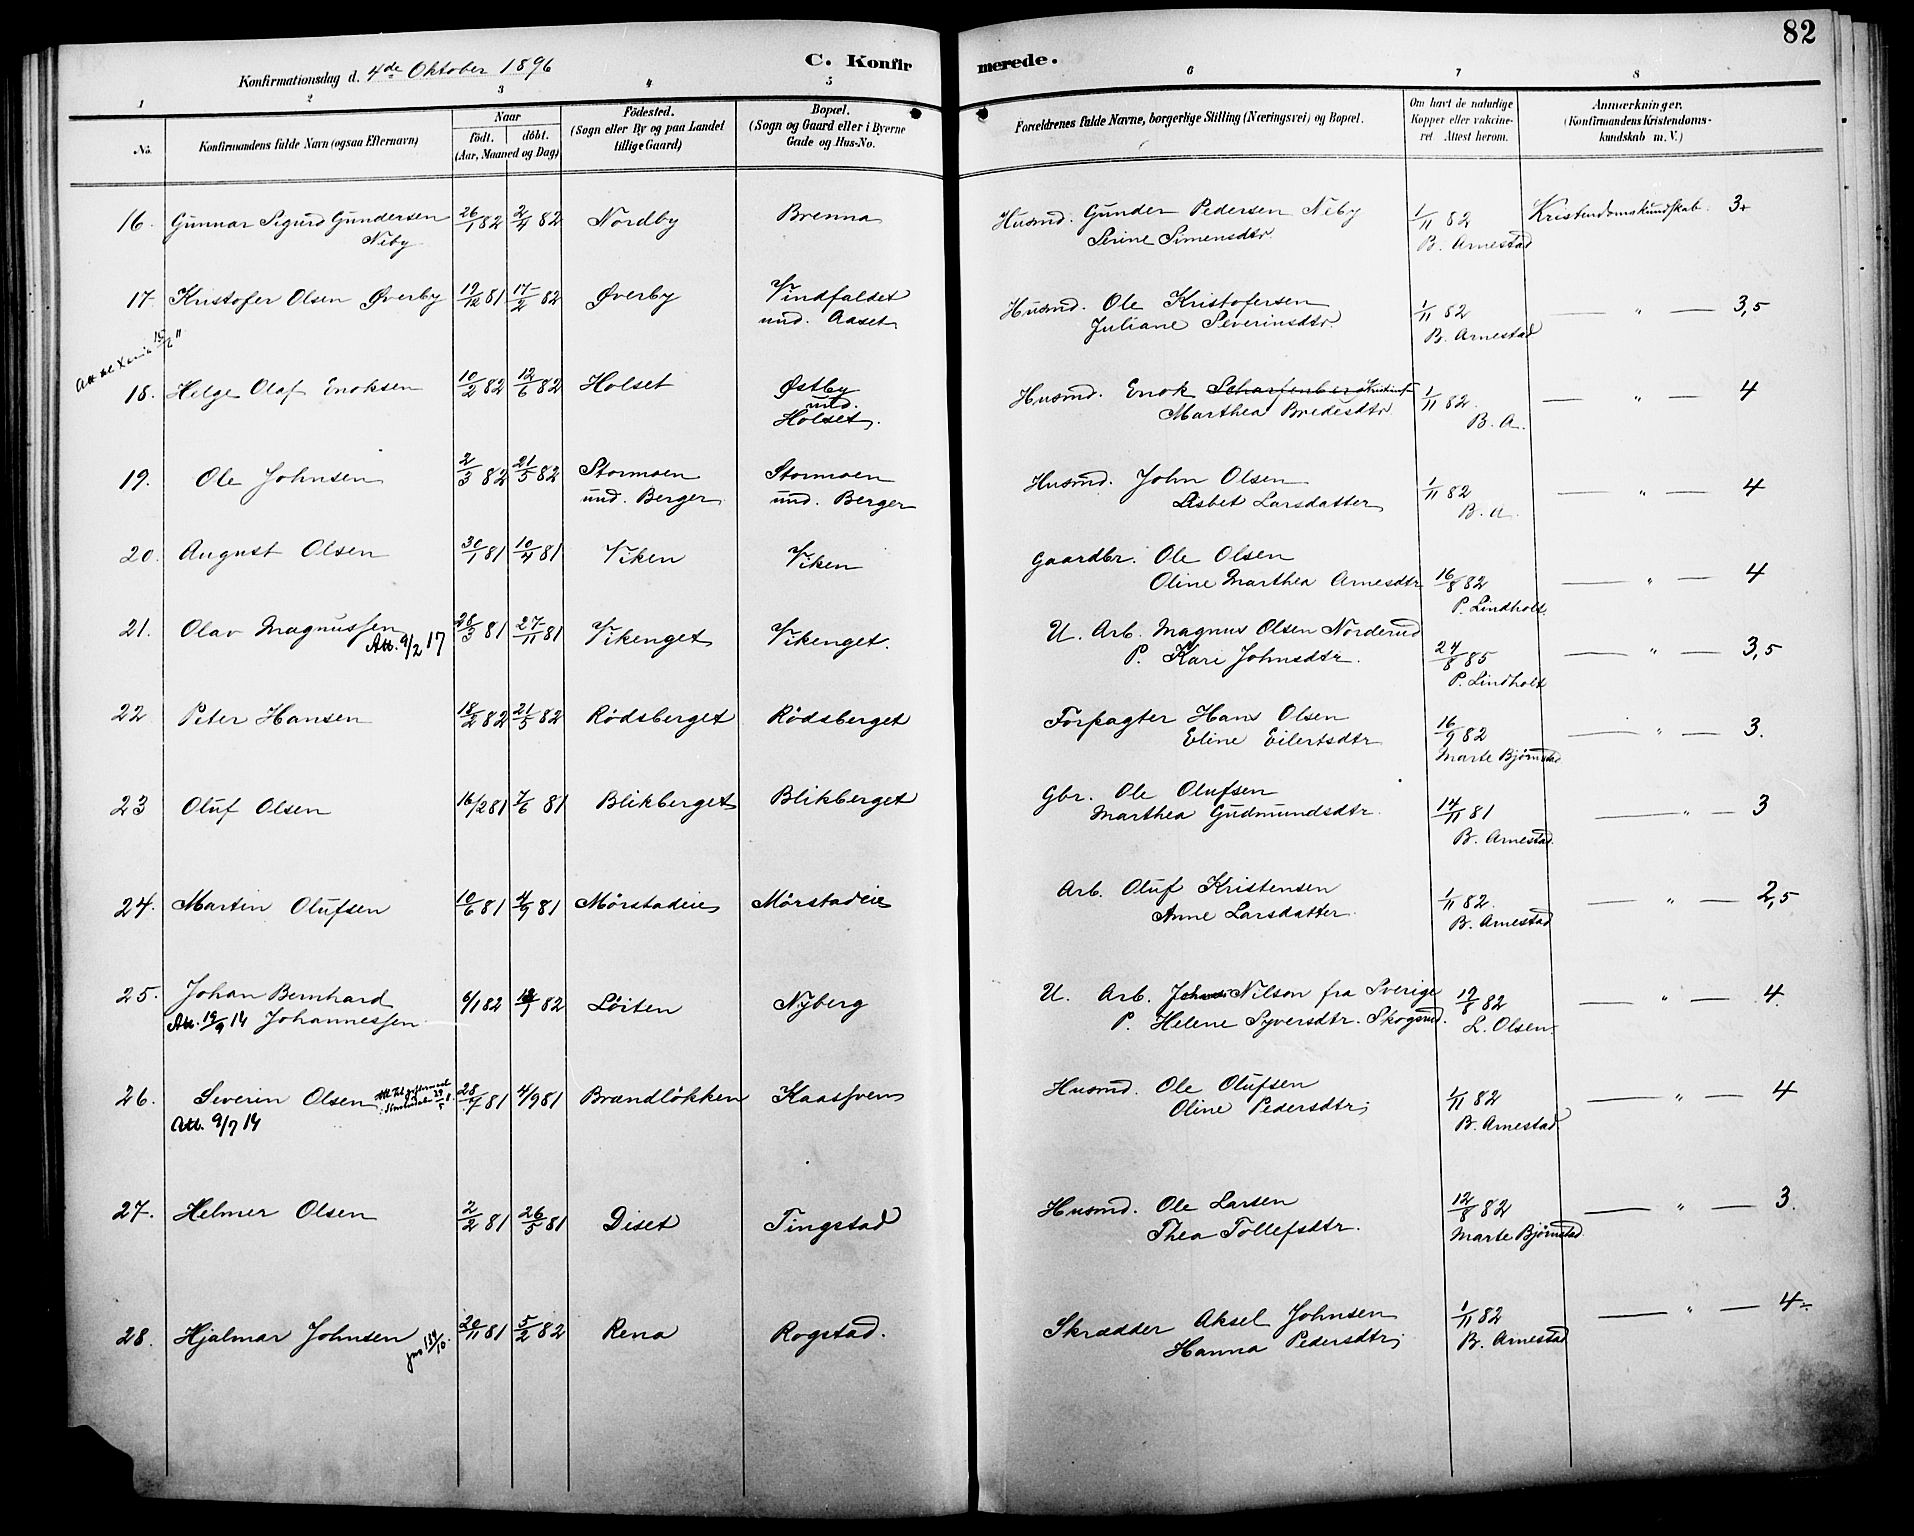 82
Konfirmationsdag d. 4de Oktober 1896
C. Konfirmerede.
1 2 3 4 5 6 7 8
No.
Konfirmandens fulde Navn (ogsaa Efternavn)
Naar
født. døbt.
(Aar, Maaned og Dag)
Fødested.
(Sogn eller By og paa Landet
tillige Gaard)
Bopæl.
(Sogn og Gaard eller i Byerne
Gade og Hus-No.
Forældrenes fulde Navne, borgerlige Stilling (Næringsvei) og Bopæl.
Om havt de naturlige
Kopper eller vakcine-
ret. Attest herom.
Anmærkninger.
(Konfirmandens Kristendoms-
kundskab m. V.)
16. Gunnar Sigurd Gundersen 26/1 82 2/4 82 Nordby Brenna Husmd. Gunder Pedersen Neby 1/11 82 Kristendomskundskab. 3+
Neby Serine Simensdtr. B. Arnestad
17 Kristofer Olsen Øverby 19/12 81 17/2 82 Øverby Vindfaldet Husmd. Ole Kristofersen 1/11 82 — " — 3,5
und. Aaset Juliane Severinsdtr. B. Arnestad
Att til Xania 15/2 11
18. Helge Olaf Enoksen 10/2 82 12/6 82 Holset Østby Husmd. Enok Scharfenberg 1/11 82. — " — 4
und. Marthea Bredesdtr B. A.
Holset.
19. Ole Johnsen 2/3 82 21/5 82 Stormoen Stormoen Husmd. John Olsen 1/11 82 — " — 4
und. Berger und. Berger Lisbet Larsdatter B. A.
20. August Olsen 30/1 81 10/4 81 Viken Viken Gaardbr. Ole Olsen
Oline Marthea Arnesdtr 16/8 82 — " — 4
P. Lindholt.
21. Olav Magnussen 28/3 81 27/11 81 Vikenget Vikenget. U. Arb. Magnus Olsen Norderud
Att. 9/2 17 P. Kari Johnsdtr. 24/8 85 — " — 3,5
P. Lindholt
22 Peter Hansen 18/2 82 21/5 82 Rödsberget Rödsberget Forpagter Hans Olsen 16/9 82 — " — 3.
Eline Eilertsdtr Marte Bjørnstad
23 Oluf Olsen 16/2 81 7/6 81 Blikberget Blikberget Gbr. Ole Olufsen 14/11 81 — " — 3
Marthea Gudmundsdtr. B. Arnestad.
24. Martin Olufsen 10/6 81 4/9 81 Mörstadeie Mörstadeie Arb. Oluf Kristensen 1/11 82. — " — 2,5
Anne Larsdatter. B. Arnestad
25. Johan Bernhard 6/1 82 82 Löiten Nyberg U. Arb. Nilson fra Sverige 19/8 82 — " — 4
Att. 19/9 14 Johannessen P. Helene Syversdtr. Skogsrud. L. Olsen.
26. Severin Olsen 28/7 81 4/9 81 Brandløkken Kaassven Husmd. Ole Olufsen 1/11 82 — " — 4
Att. 9/7 14 Oline Pedersdtr; B. Arnestad.
27. Helmer Olsen 2/2 81 26/5 81 Diset Tingstad Husmd. Ole Larsen 12/8 82 — " — 3.
Thea Tollefsdtr. Marte Bjørnstad
28. Hjalmar Johnsen 20/11 81 5/2 82 Rena Rogstad. Skrædder Aksel Johnsen 1/11 82 — " — 4-
Hanna Pedersdtr; B. Arnestad